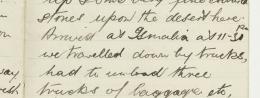 up some very fine
stones upon the desert here.
Arrived at Ismalia at 11-30 Pm
we travelled down by trucks,
had to unload three
trucks of baggage etc,